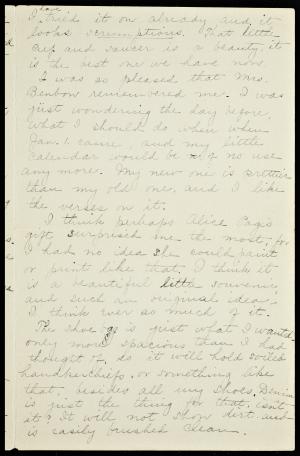 I tried it on already, and it
looks scrumptious. That little
cup and saucer is a beauty, it
is the best one we have now.
I was so pleased that Mrs.
Benbow remembered me. I was
just wondering the day before,
what I should do when when
Jan. 1. came, and my little
calendar would be of no use
any more. My new one is prettier
than my old one, and I like
the verses on it.
I think perhaps Alice
gift surprised me the most, for
I had no idea she could paint
or print like that. I think it
is a beautiful little souvenir,
and such an original idea,
I think ever so much of it.
The shoe is just what I wanted
only more spacious than I had
thought of, so it will hold soiled
handkerchiefs, or something like
that, besides all my shoes. Denim
is just the thing for that, isn't
it? It will not show dirt and
is easily brushed clean.